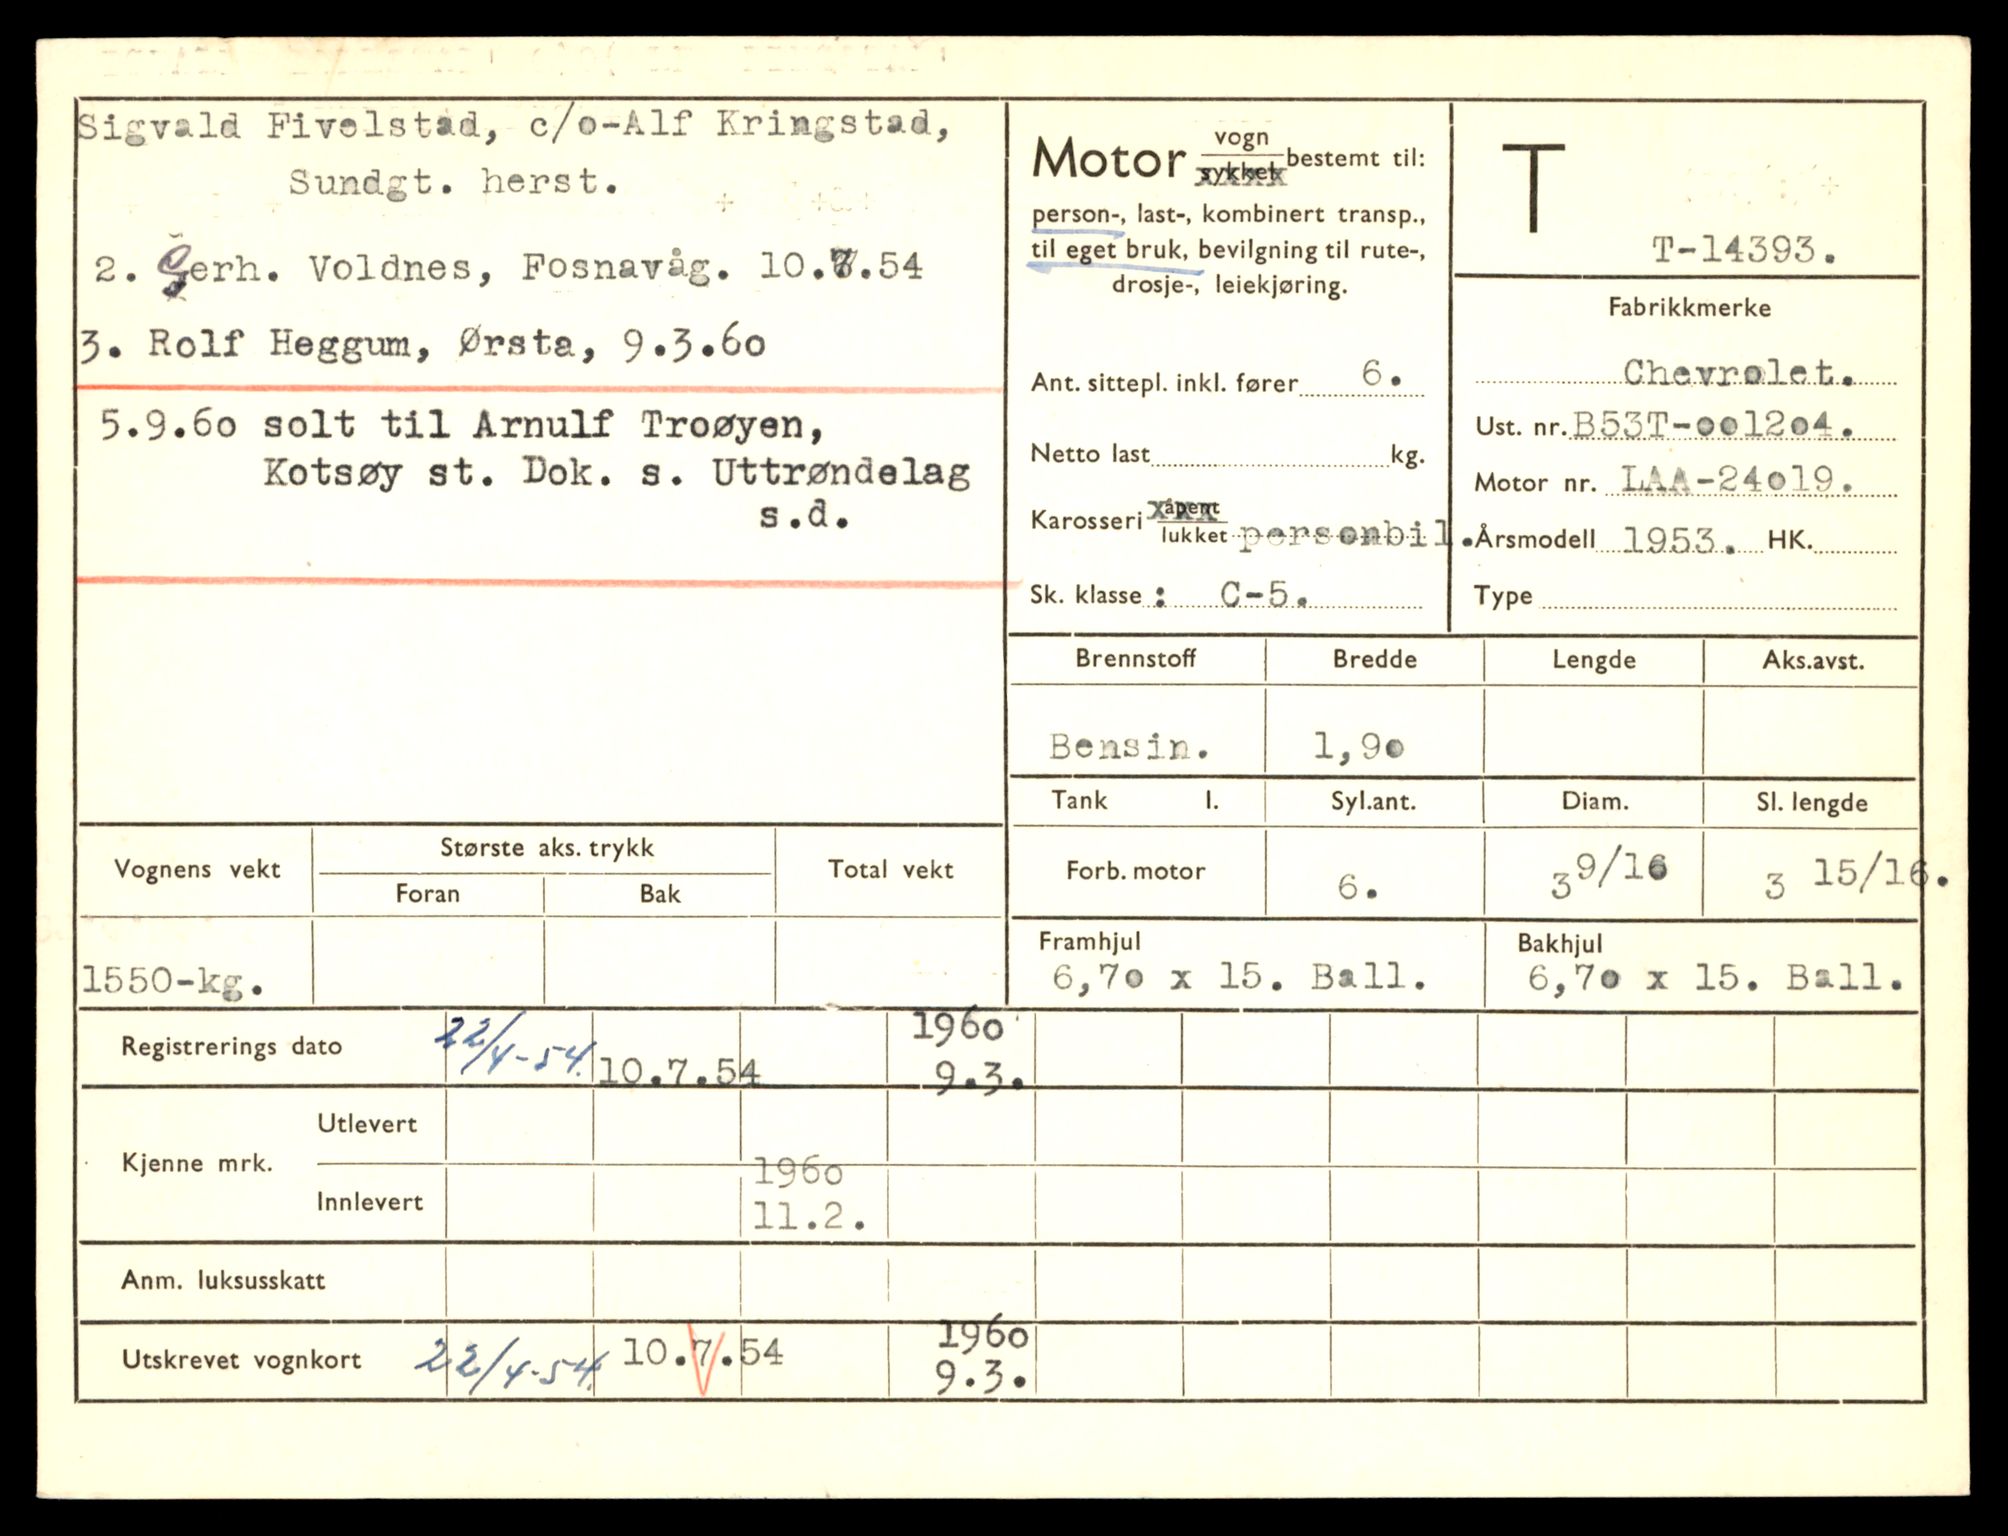 Sigvald Fivelstad, c/o-Alf Kringstad,
Sundgt. herst.
2. Gerh. Voldnes, Fosnavåg. 10.7.54
3. Rolf Heggum, Ørsta, 9.3.60
5.9.60 solt til Arnulf Troøyen,
Kotsøy st. Dok. s. Uttrøndelag
s.d.
Motor vogn bestemt til:
sykket
person-, last-, kombinert transp.,
til eget bruk, bevilgning til rute-,
drosje-, leiekjøring.
Ant. sittepl. inkl. fører 6.
Netto last kg.
Karosseri åpent
lukket personbil.
Sk. klasse : C-5.
T
T-14393.
Fabrikkmerke
Chevrolet.
Ust. nr. B53T-001204.
Motor nr. LAA-24019.
Årsmodell 1953. HK.
Type
Brennstoff Bredde Lengde Aks.avst.
Bensin. 1,90
Tank l. Syl.ant. Diam. Sl. lengde
Forb. motor 6. 3 9/16 3 15/16.
Framhjul Bakhjul
6,70 x 15. Ball. 6,70 x 15. Ball.
Vognens vekt Største aks. trykk Total vekt
Foran Bak
1550-kg.
Registrerings dato 22/4-54. 10.7.54 1960
9.3.
Kjenne mrk. Utlevert
Innlevert 1960
11.2.
Anm. luksusskatt
Utskrevet vognkort 22/4-54. 10.7.54 1960
9.3.